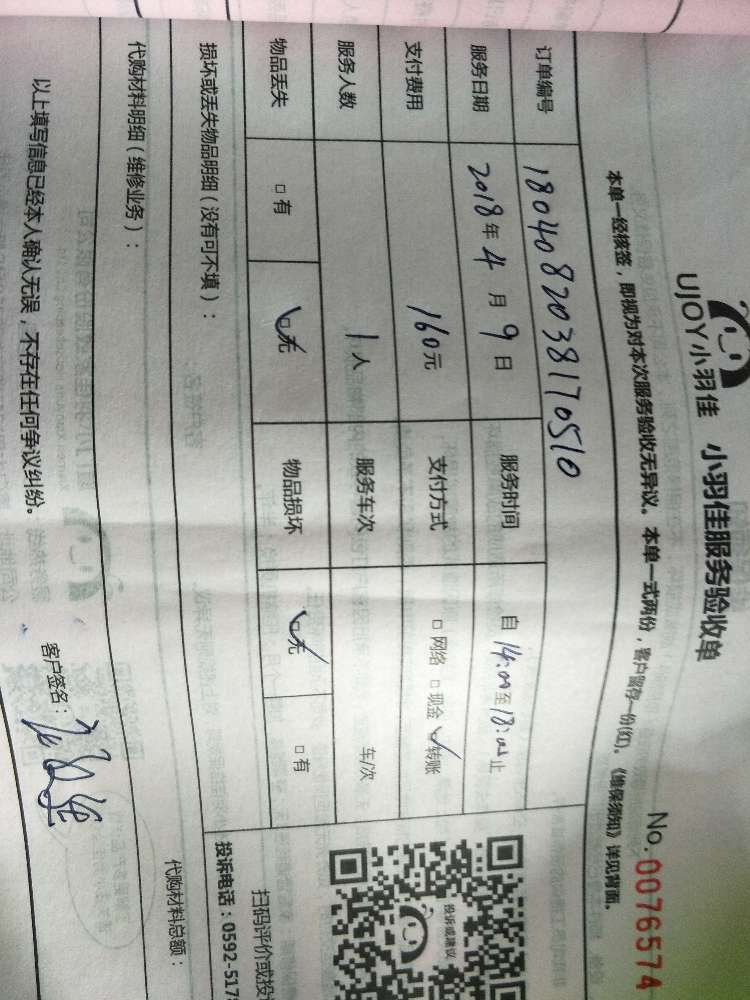 UJOY小羽佳 小羽佳服务验收单
No.0076574
本单一经核签，即视为对本次服务验收无异议。本单一式两份，客户留存一份(红)。《维保须知》详见背面。
订单编号 1804082038170510
服务日期 2018年4月9日 服务时间 自14:00至18:00止
支付费用 160元 支付方式 □网络 □现金 ☑转账
服务人数 1人 服务车次 车/次
物品丢失 □有 ☑无 物品损坏 ☑无 □有
损坏或丢失物品明细（没有可不填）：
投诉或建议
扫码评价或投
投诉电话：0592-517
代购材料明细（维修业务）：
代购材料总额：
以上填写信息已经本人确认无误，不存在任何争议纠纷。
客户签名：